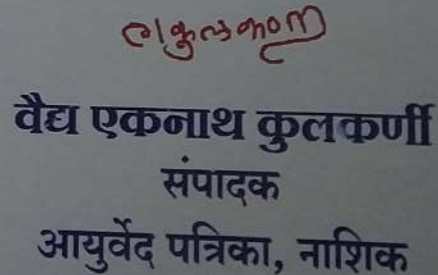 वैद्य एकनाथ कुलकर्णी
संपादक
आयुर्वेद पत्रिका, नाशिक